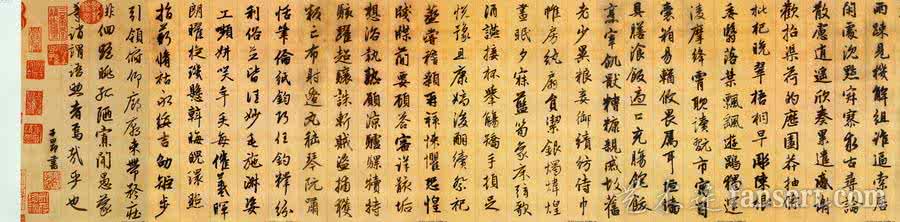 兩疏見機解組誰逼索居
閑處沉默寂寥求古尋論
散慮逍遙欣奏累遣慼謝
歡招渠荷的歷園莽抽條
枇杷晚翠梧桐早彫陳根
委翳落葉飄颻遊鵾獨運
凌摩絳霄耽讀翫市寓目
囊箱易輶攸畏屬耳垣牆
具膳飡飯適口充腸飽飫
烹宰飢猒糟糠親戚故舊
老少異粮妾御績紡侍巾
帷房紈扇員潔銀燭煒煌
晝眠夕寐藍筍象床弦歌
酒讌接杯舉觴矯手頓足
悅豫且康嫡後嗣續祭祀
蒸嘗稽顙再拜悚懼恐惶
牋牒簡要顧答審詳骸垢
想浴執熱願涼驢騾犢特
駭躍超驤誅斬賊盜捕獲
叛亡布射遼丸嵇琴阮嘯
恬筆倫紙鈞巧任釣釋紛
利俗並皆佳妙毛施淑姿
工嚬妍笑年矢每催羲暉
朗曜璇璣懸斡晦魄環照
指薪脩祜永綏吉劭矩步
引領俯仰廊廟束帶矜莊
徘徊瞻眺孤陋寡聞愚蒙
等誚謂語助者焉哉乎也
子昂書